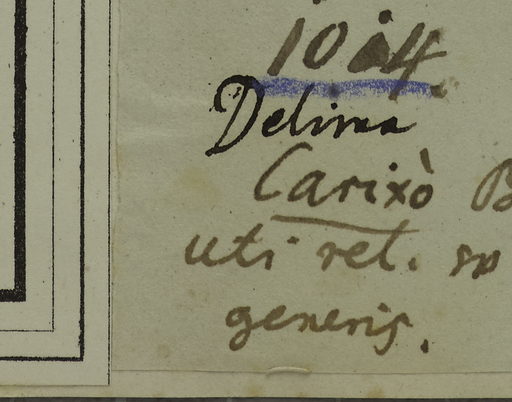 1014
Delima
Carixò B
uti rel. sp
generis.